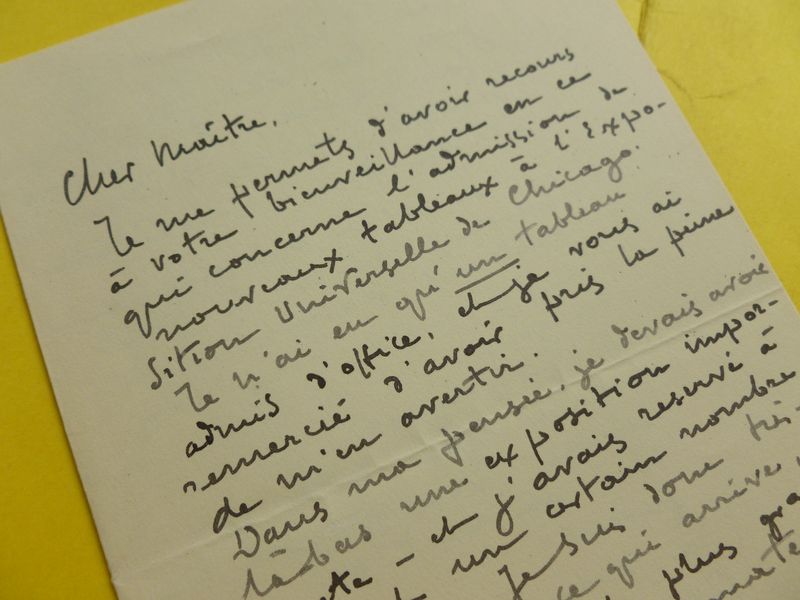 Cher Maître,
Je me permets d'avoir recours
à votre bienveillance en ce
qui concerne l'admission de
nouveaux tableaux à l'Expo-
sition Universelle de Chicago.
Je n'ai eu qu'un tableau
admis d'office, et je vous ai
remercié d'avoir pris la peine
de m'en avertir.
Dans ma pensée, je devais avoir
làbas une exposition impor-
te - et j'avais reservé à
un certain nombre
Je suis donc très-
ce qui arrive,
plus gra